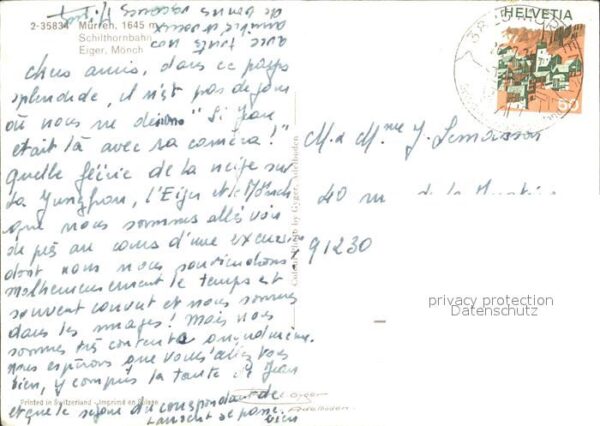 2-35834 Mürren, 1645 m
Schilthornbahn
Eiger, Mönch
Chers amis, dans ce pays
splendide, il n'est pas de jour
où nous ne disions "Si Jean
était là avec sa caméra!"
quelle féérie de la neige sur
la Jungfrau, l'Eiger et le Mönch
que nous sommes allés voir
de près au cours d'une excursion
dont nous nous souviendrons
malheureusement le temps est
souvent couvert et nous sommes
dans les nuages! Mais nous
sommes très contents quand même.
nous espérons que vous allez
bien, y compris la tante de Jean
et que le séjour du correspondant de
Laurent se passe bien
avec toutes nos
amitiés
de bonnes vacances
HELVETIA
50
M. & Mme J. Lemasson
40 de la
91230
Gyger, Adelboden
privacy protection
Datenschutz
Printed in Switzerland - Imprimé en Suisse
Gyger
Adelboden